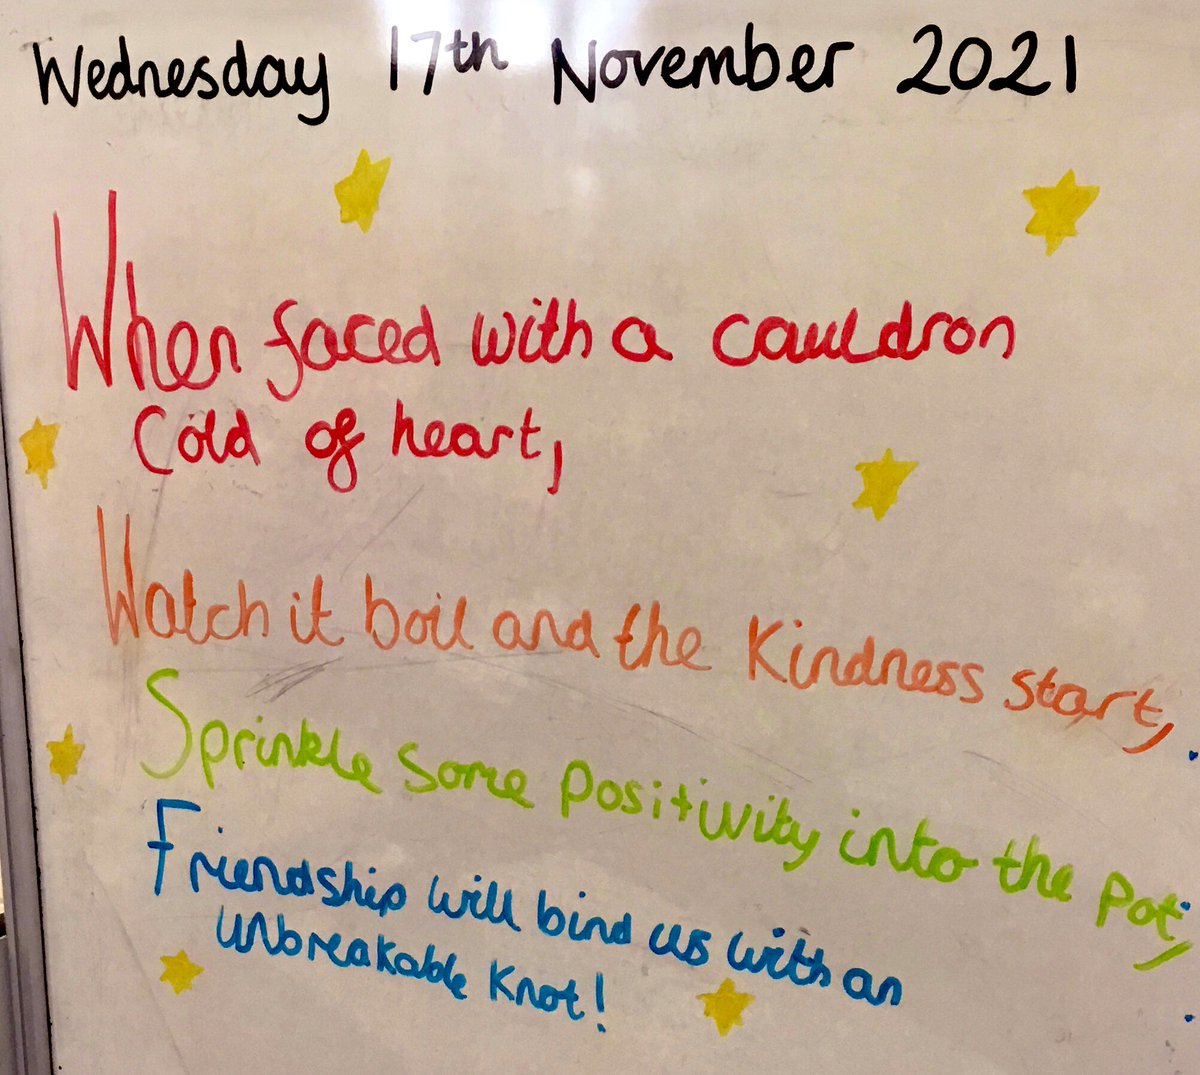 Wednesday 17th November 2021
When faced with a cauldron
Cold of heart,
Watch it boil and the Kindness start,
Sprinkle Some Positivity into the Pot,
Friendship will bind us with an
Unbreakable Knot!